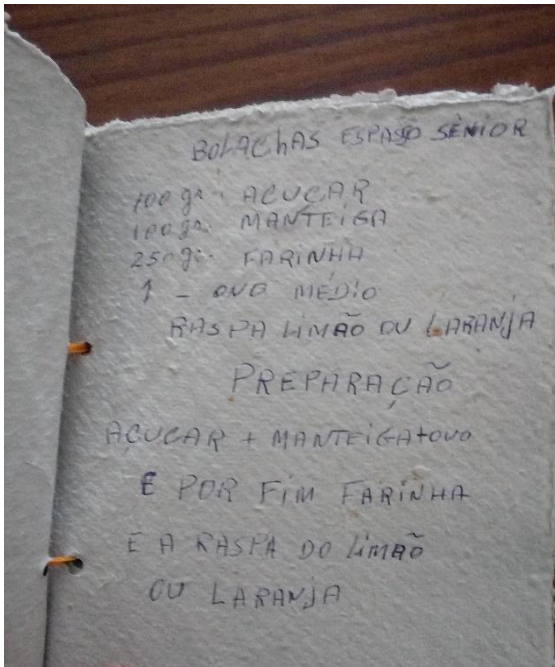 BOLAChAS ESPAÇO SÉNIOR
100 gr. AÇUCAR
100 gr. MANTEIGA
250 gr. FARINHA
1 - OVO MÉDIO
RASPA LIMÃO OU LARANJA
PREPARAÇÃO
AÇUCAR + MANTEIGA + OVO
E POR FIM FARINHA
E A RASPA DO LIMÃO
OU LARANJA